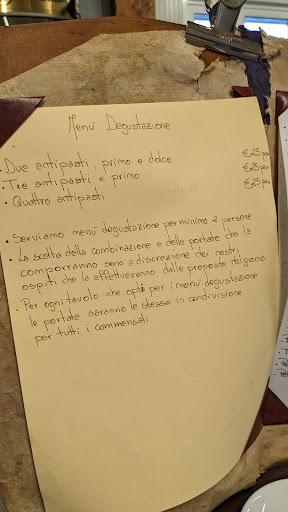 Menù Degustazione
• Due antipasti, primo e dolce €25 pax
• Tre antipasti e primo €25 pax
• Quattro antipasti €25 pax
• Serviamo menù degustazione per minimo 2 persone
• La scelta della combinazione e delle portate che la
comporranno sono a discrezione dei nostri
ospiti che la effettueranno dalle proposte del giorno
• Per ogni tavolo che opta per i menù degustazione
le portate saranno le stesse in condivisione
per tutti i commensali